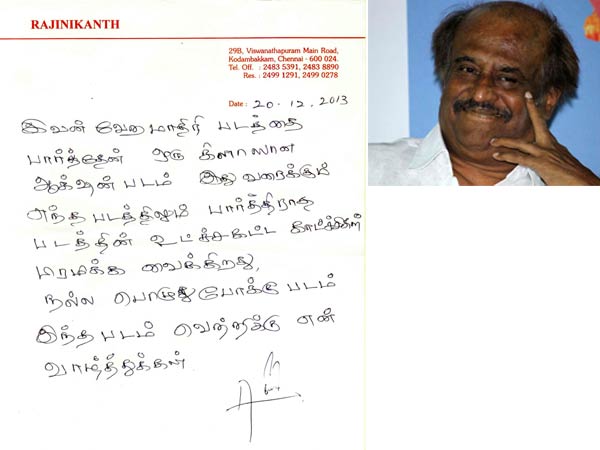 RAJINIKANTH
29B, Viswanathapuram Main Road,
Kodambakkam, Chennai - 600 024.
Tel. Off. : 2483 5391, 2483 8890
Res. : 2499 1291, 2499 0278
Date : 20.12.2013
இவன் வேறமாதிரி படத்தை
பார்த்தேன் ஒரு தினாலான
ஆக்ஷன் படம் இது வரைக்கும்
எந்த படத்திலும் பார்த்திராத
படத்தின் உட்ச்சகட்ட காட்சிகள்
பரமிக்க வைக்கிறது,
நல்ல பொழுதுபோக்கு படம்
இந்த படம் வெற்றிக்கு என்
வாழ்த்துக்கள்